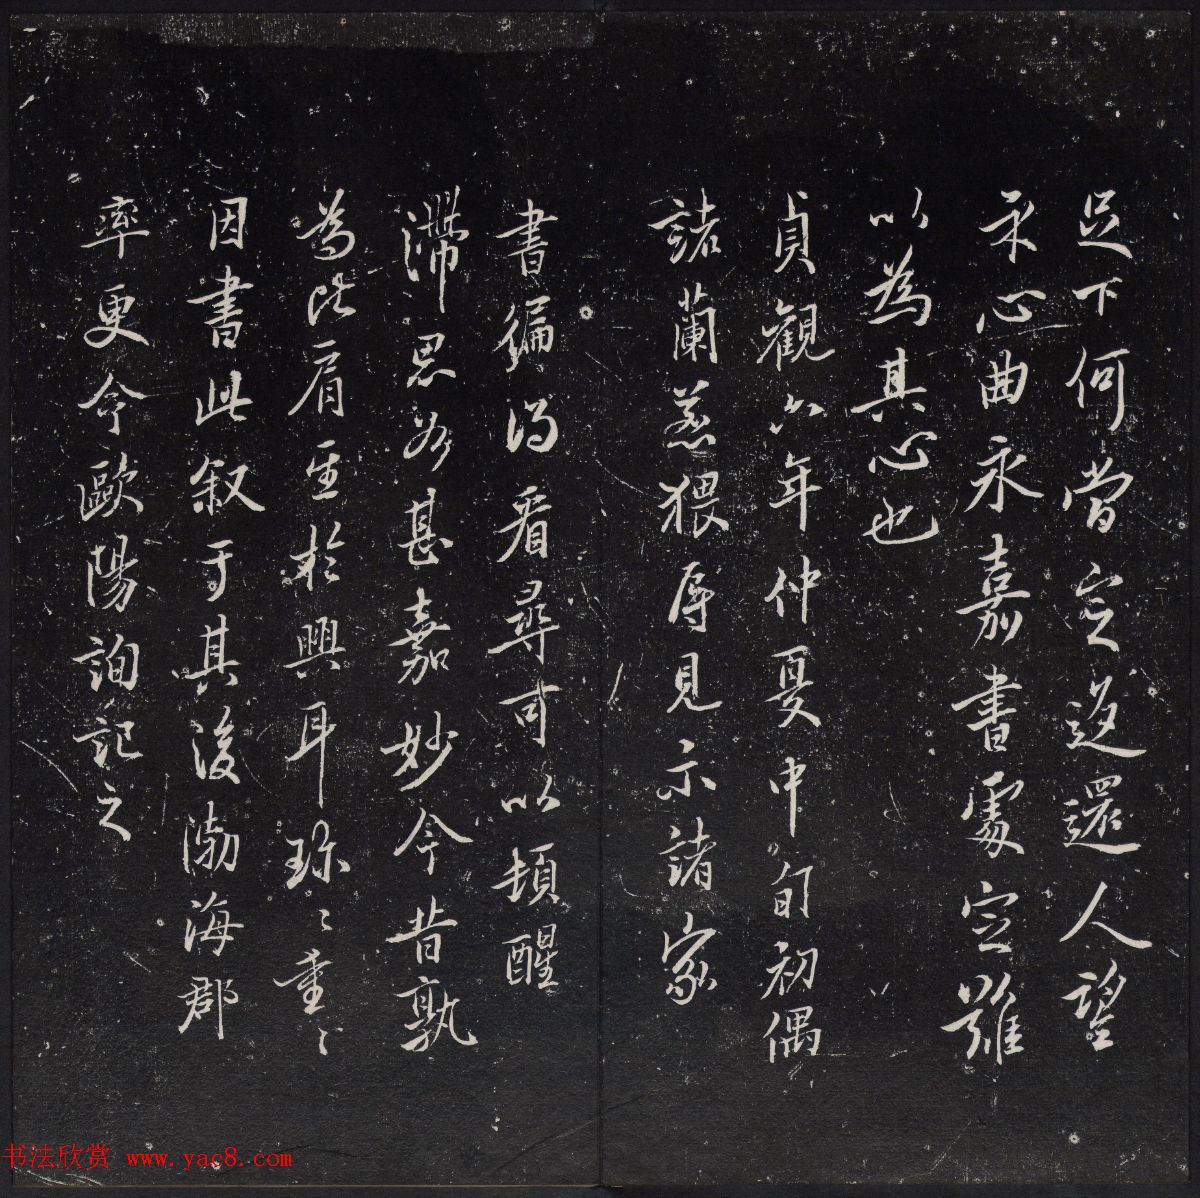 足下何當定迟還人望
示心曲永嘉書處定難
以為其心也
貞觀六年仲夏中旬初偶
諸蘭若猥辱見示諸家
書徧得看尋可以頓醒
滯思為甚嘉妙今昔孰
為比肩至於興耳珎〻重〻
因書此叙于其後渤海郡
率更令歐陽詢記之
书法欣赏 www.yac8.com